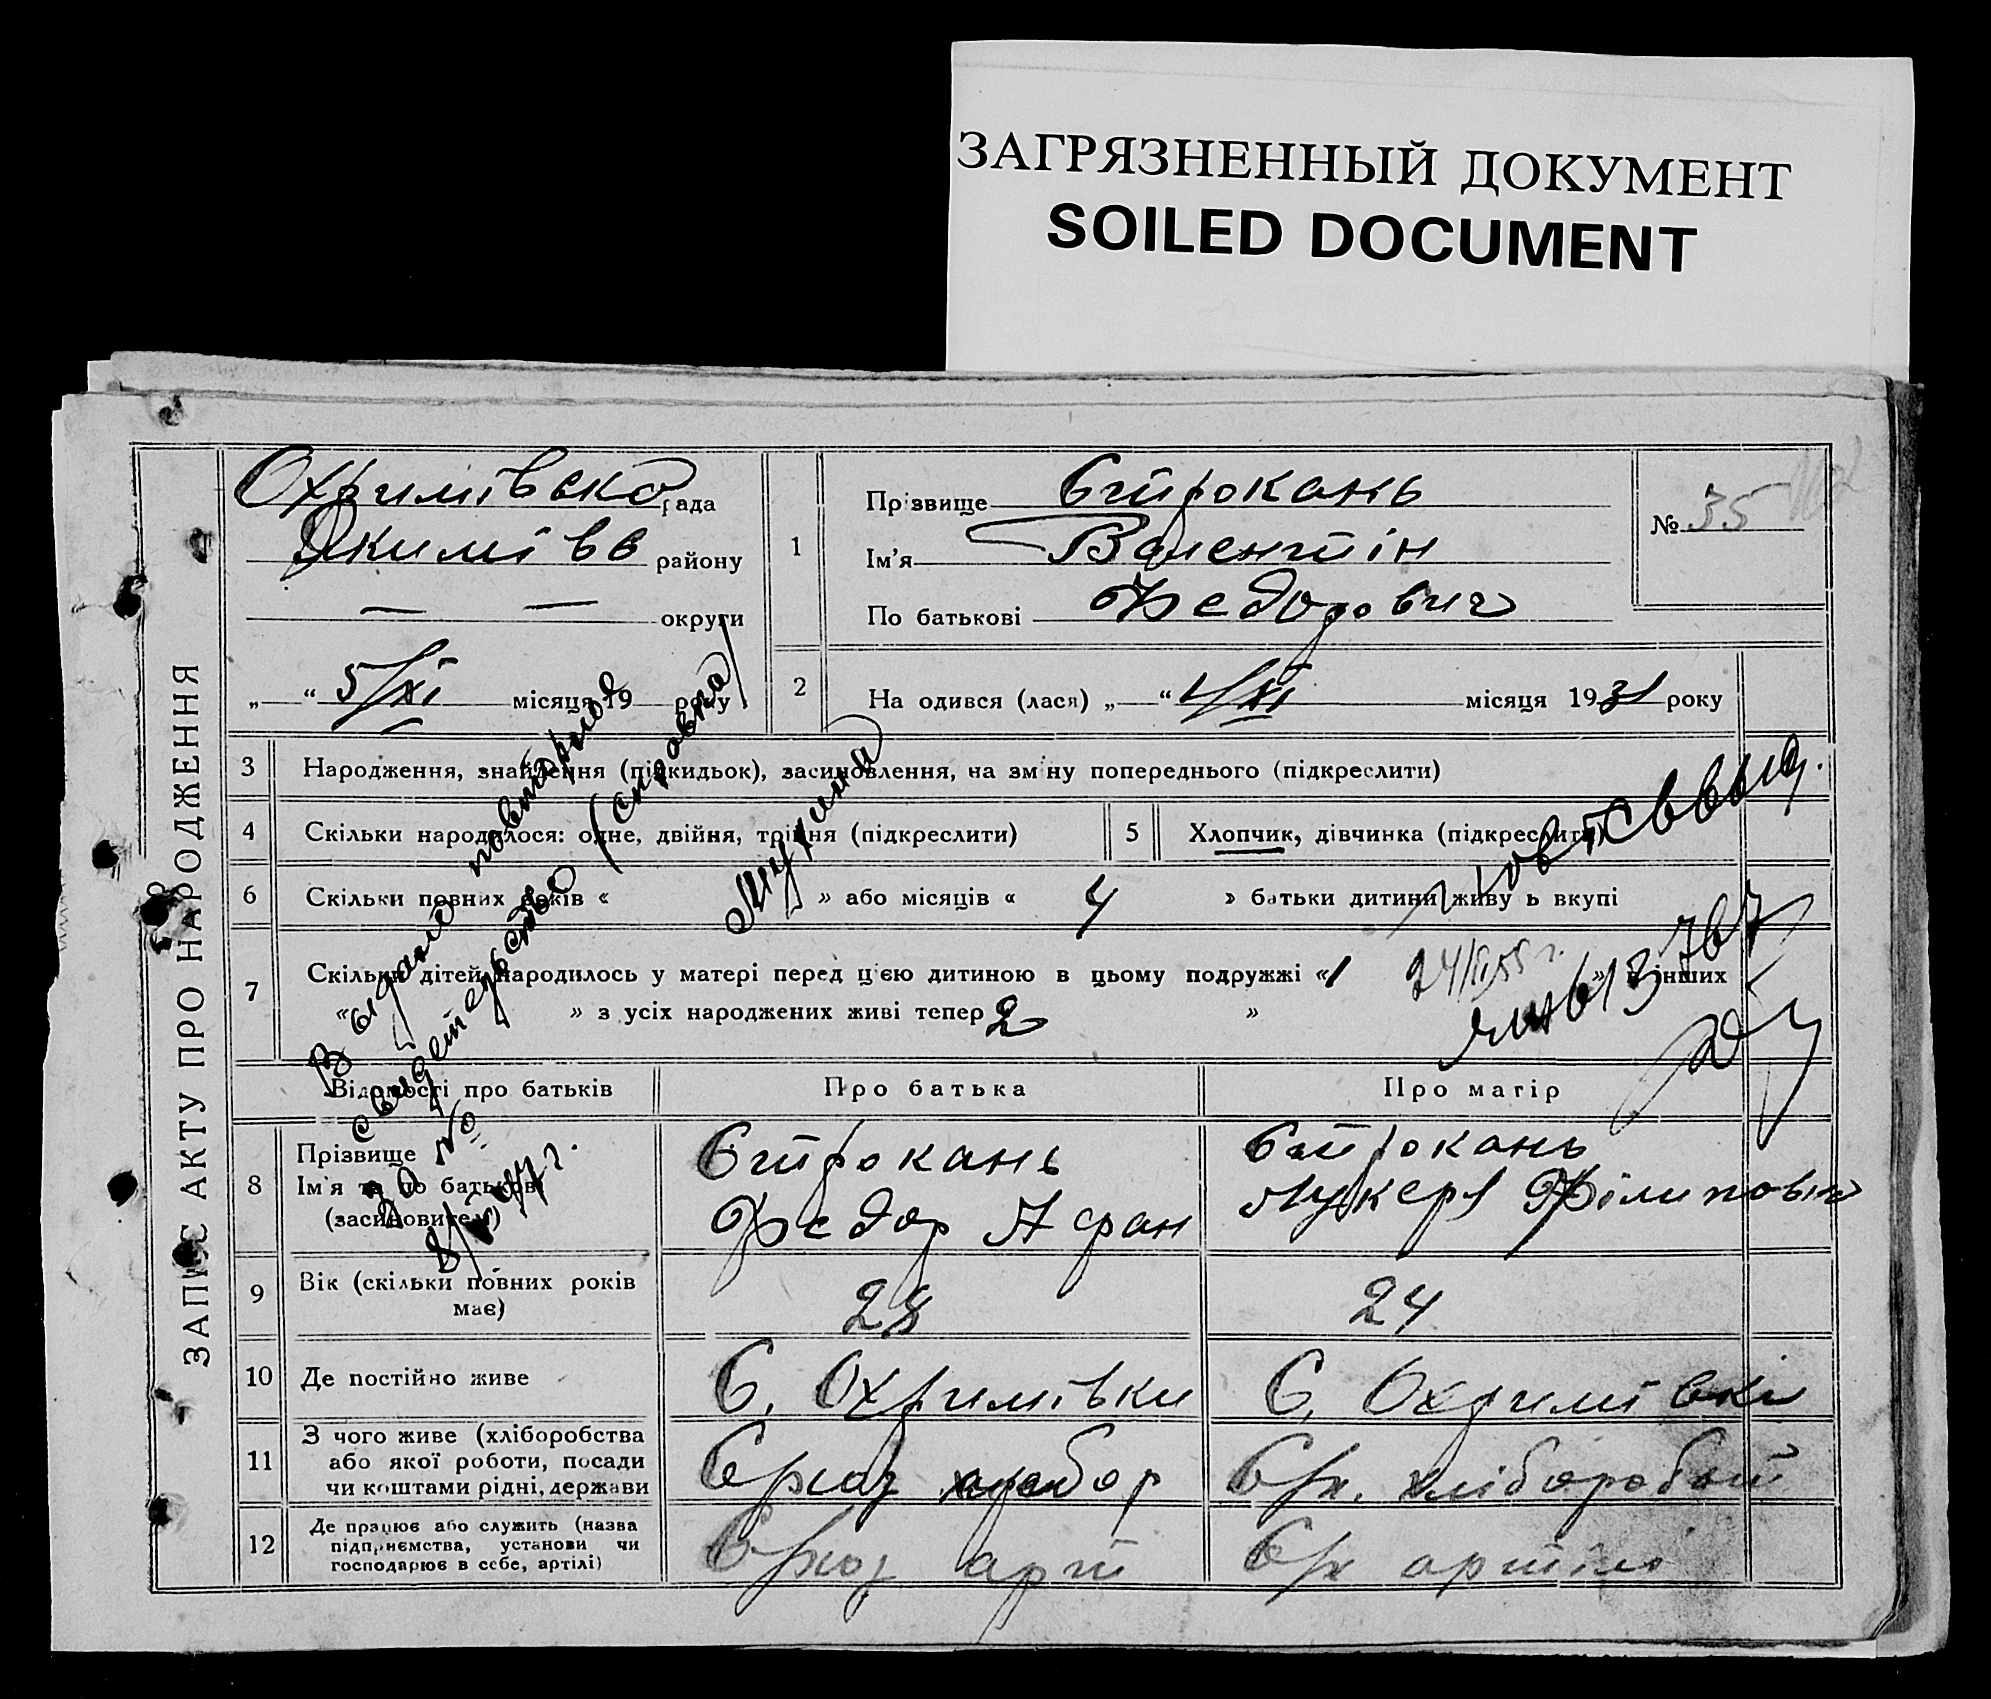 ЗАГРЯЗНЕННЫЙ ДОКУМЕНТ
SOILED DOCUMENT
ЗАПИС АКТУ ПРО НАРОДЖЕННЯ
Охримівська рада
Якимівв району
— — округи
„ “ 5/XI місяця 19 року
1
Прізвище Строкань
Ім'я Валентін
По батькові Федорович
№ 35
2 На одився (лася) „ “ 1/XI місяця 1931 року
3 Народження, знайдення (підкидьок), засиновлення, на зміну попереднього (підкреслити)
4 Скільки народилося: одне, двійня, трійня (підкреслити)
5 Хлопчик, дівчинка (підкреслити)
6 Скільки повних років « » або місяців « 4 » батьки дитини живу ь вкупі
7 Скільки дітей народилось у матері перед цією дитиною в цьому подружжі « 1 » в інших
« » з усіх народжених живі тепер 2 »
Выдано повторное
свидетельство (справка)
за №
24/II 55 г.
Відомості про батьків Про батька Про матір
8 Прізвище
Ім'я та по батькові
(засиновителя)
Строкань
Федор Афан
Строкань
Лукеря Філипович
9 Вік (скільки повних років має) 28 24
10 Де постійно живе С. Охримівки С. Охримівкі
11 З чого живе (хліборобства
або якої роботи, посади
чи коштами рідні, держави
хліборобой
12 Де працює або служить (назва
підприємства, установи чи
господарює в себе, артілі)
арт
артілі